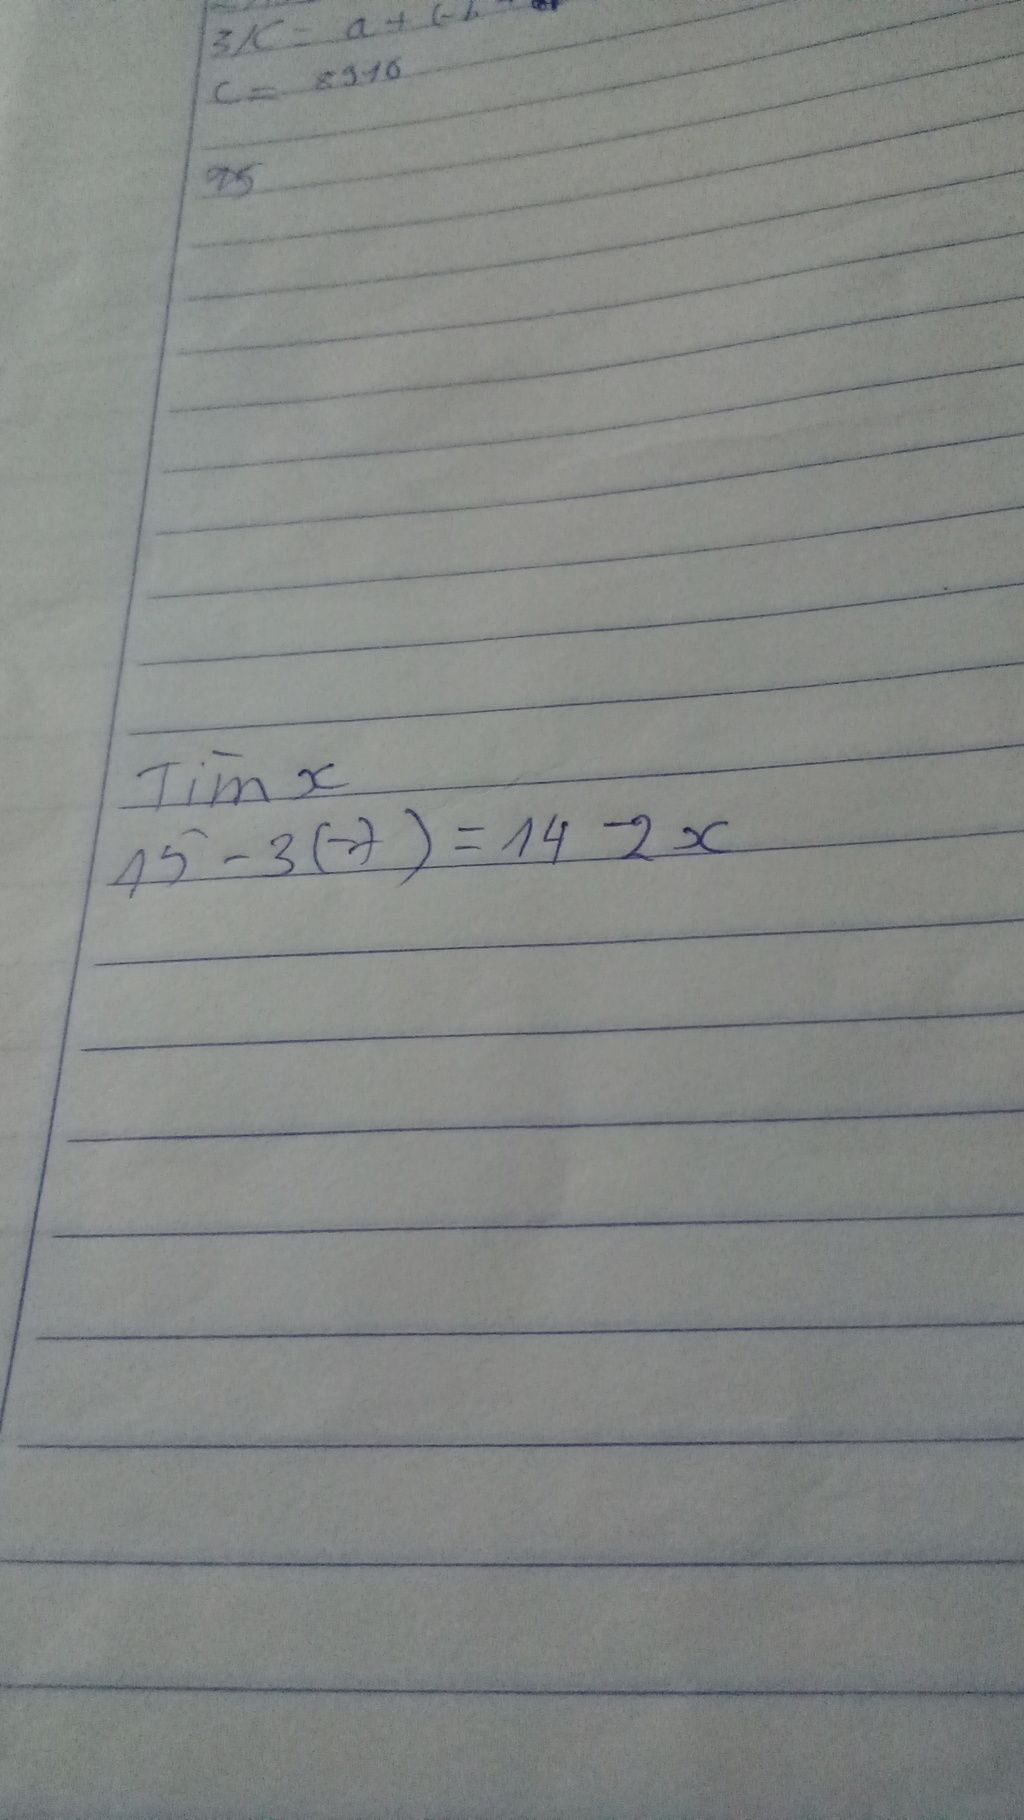 3/C = a + (-b
C = 8916
95
Tìm x
15 - 3(-7) = 14 - 2x